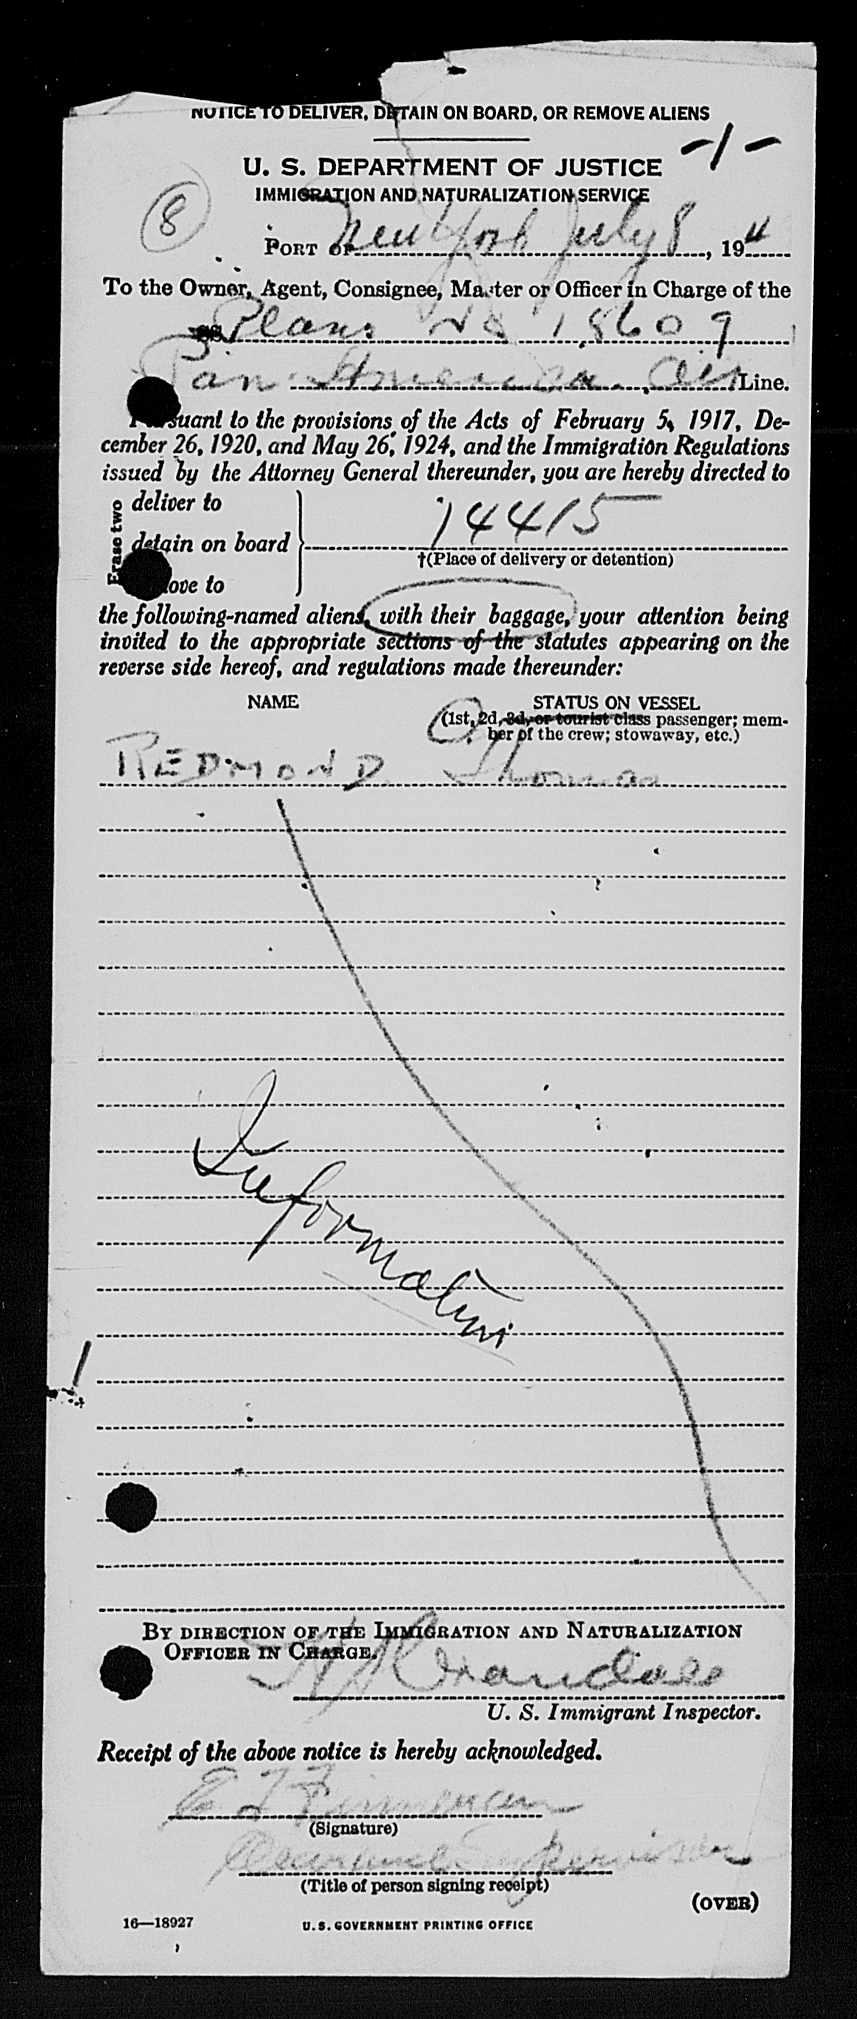 NOTICE TO DELIVER, DETAIN ON BOARD, OR REMOVE ALIENS
-1-
U. S. DEPARTMENT OF JUSTICE
IMMIGRATION AND NATURALIZATION SERVICE
8
PORT OF New York July 8, 194
To the Owner, Agent, Consignee, Master or Officer in Charge of the
SS Plane No 18609
Pan American Air Line.
Pursuant to the provisions of the Acts of February 5, 1917, De-
cember 26, 1920, and May 26, 1924, and the Immigration Regulations
issued by the Attorney General thereunder, you are hereby directed to
Erase two
deliver to
detain on board
remove to
14415
†(Place of delivery or detention)
the following-named aliens, with their baggage, your attention being
invited to the appropriate sections of the statutes appearing on the
reverse side hereof, and regulations made thereunder:
NAME STATUS ON VESSEL
(1st, 2d, 3d, or tourist class passenger; mem-
ber of the crew; stowaway, etc.)
REDMOND Thomas
Information
BY DIRECTION OF THE IMMIGRATION AND NATURALIZATION
OFFICER IN CHARGE.
Crandall
U. S. Immigrant Inspector.
Receipt of the above notice is hereby acknowledged.
E
(Signature)
Supervisor
(Title of person signing receipt)
(OVER)
16—18927
U.S. GOVERNMENT PRINTING OFFICE